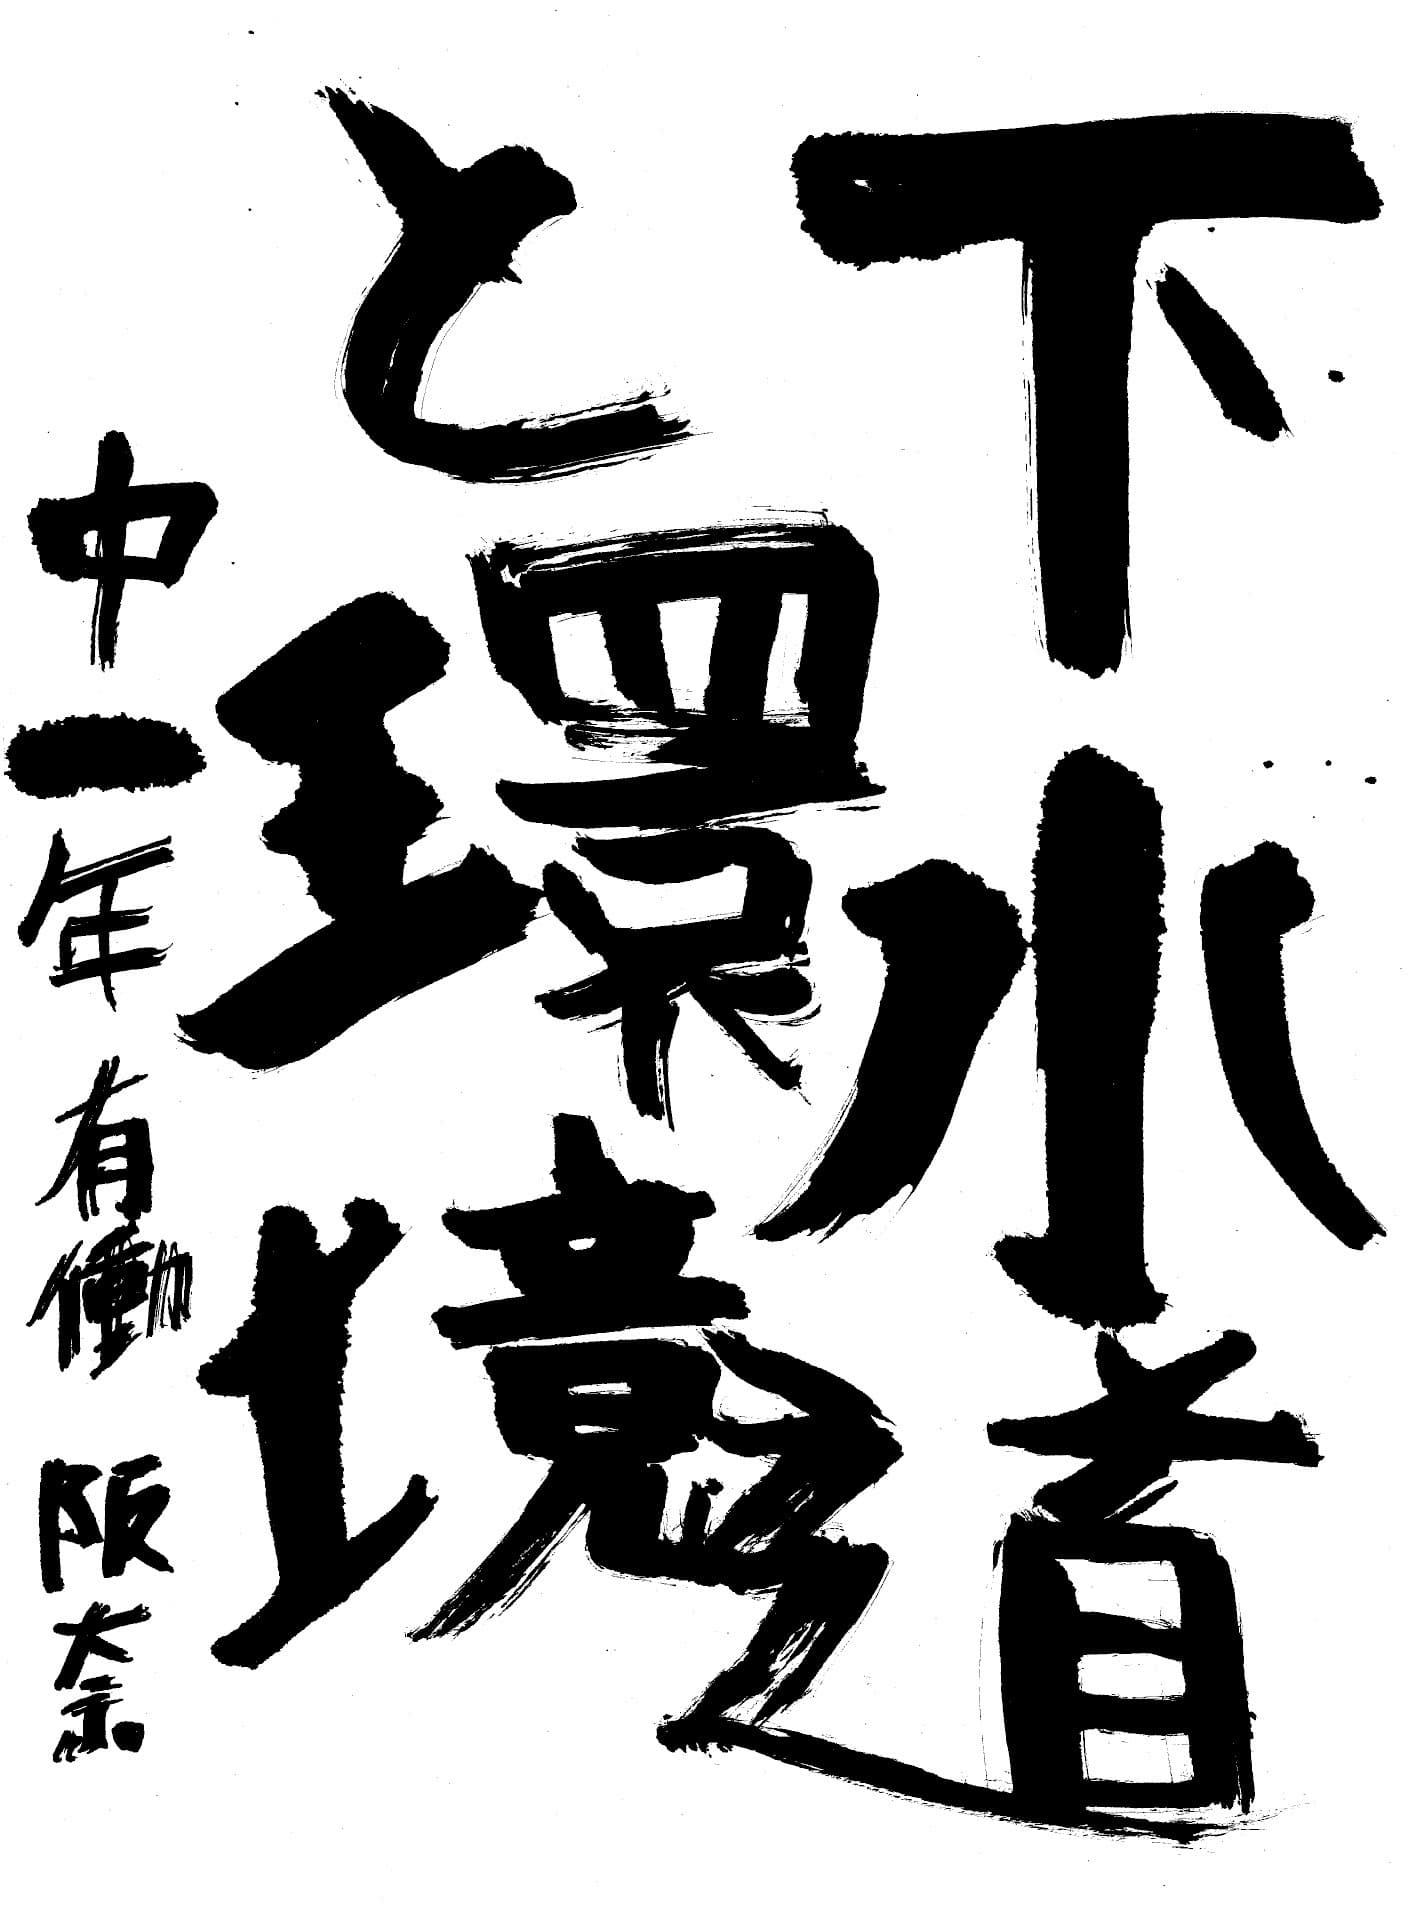 下水道
と環境
中一年 有働 阪奈